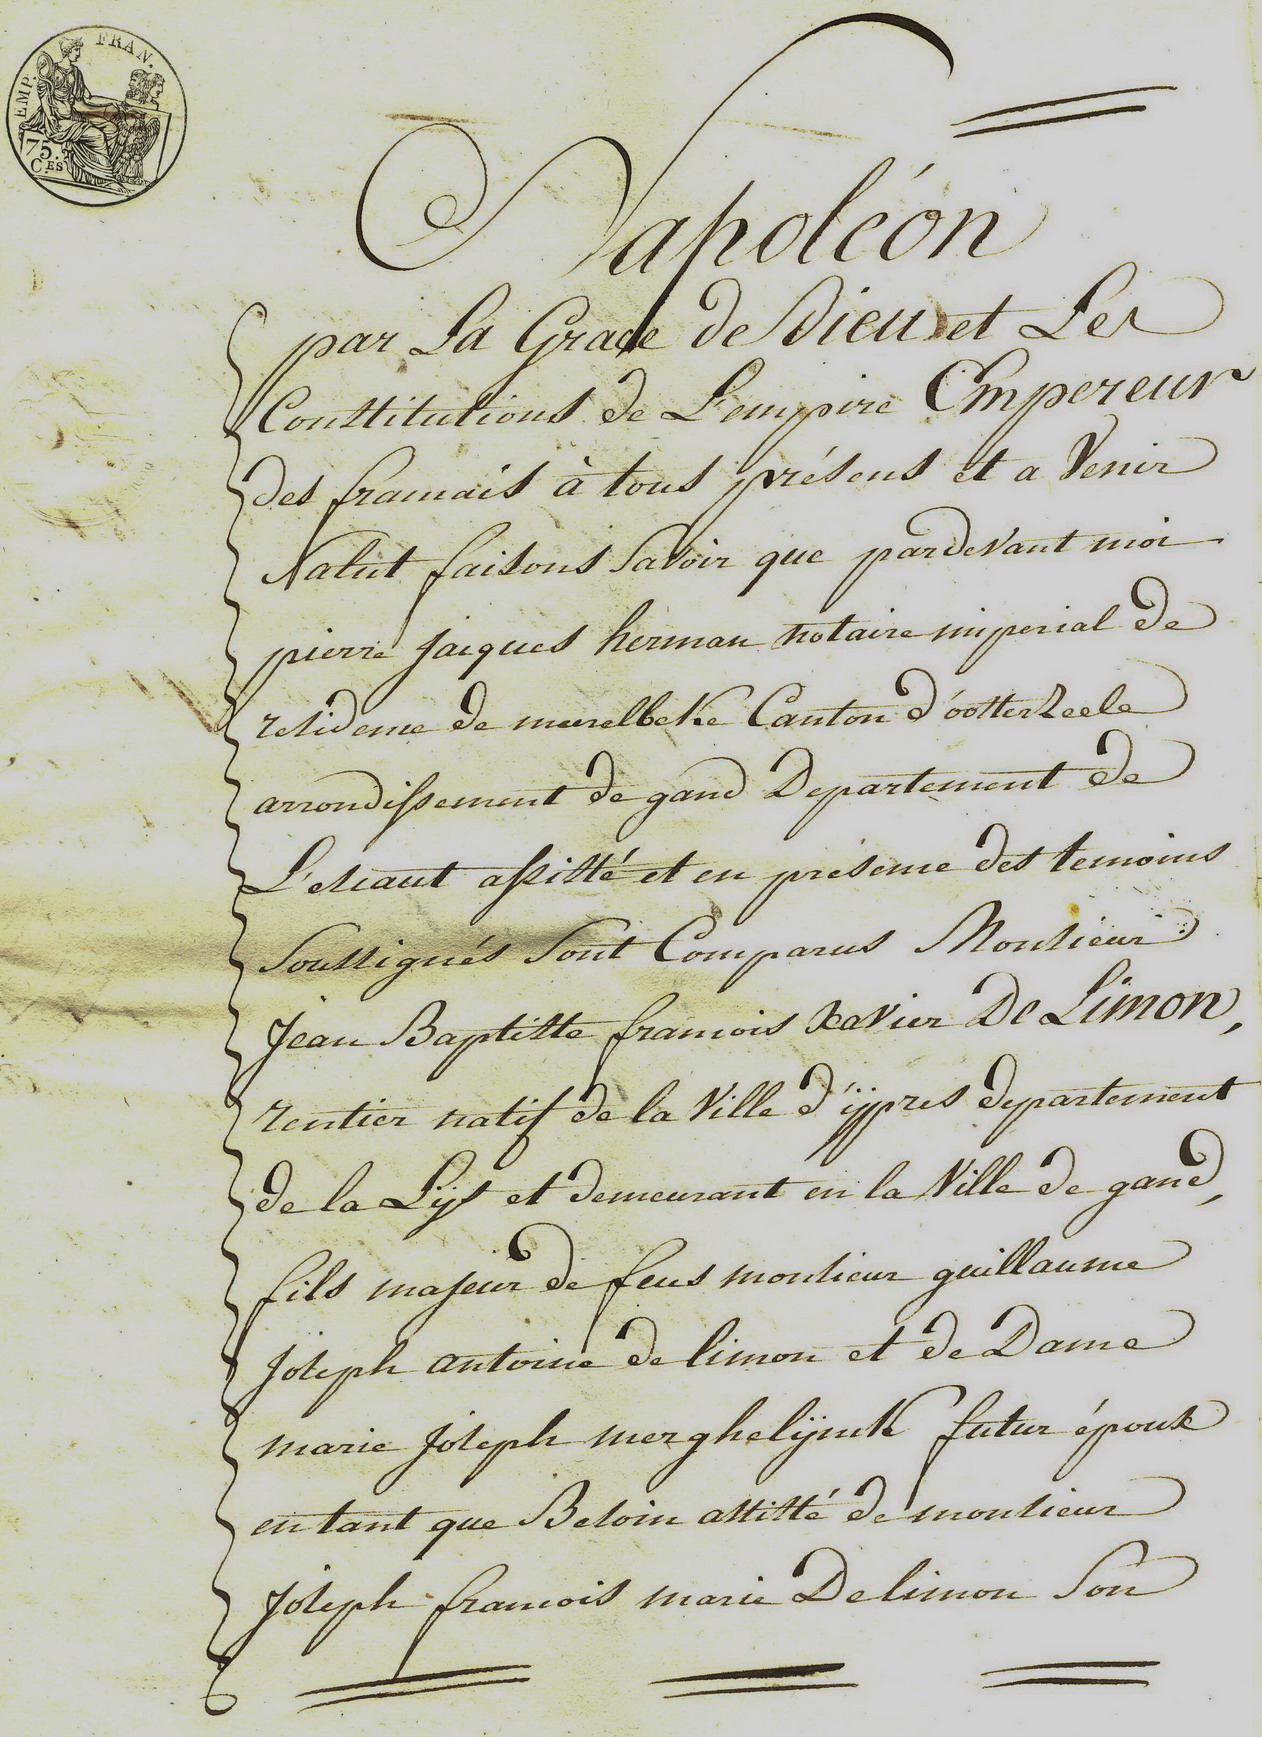 EMP. FRAN.
75.
C.ES
Napoléon
par La Grace de Dieu et Les
Constitutions de L'empire Empereur
des francais à tous présens et a Venir
Salut faisons Savoir que pardevant moi
pierre jacques herman notaire imperial de
residence de meerelbeke Canton d'ootterzeele
arrondissement de gand Departement de
L'escaut assisté et en présence des temoins
Soussignés Sont Comparus Monsieur
Jean Baptiste francois Xavier De Limon,
rentier natif de la Ville d'ÿpres departement
de la Lys et demeurant en la Ville de gand,
fils majeur de feus monsieur guillaume
Joseph antoine de limon et de Dame
marie Joseph merghelÿnck futur époux
en tant que Besoin assisté de monsieur
Joseph francois marie Delimon Son